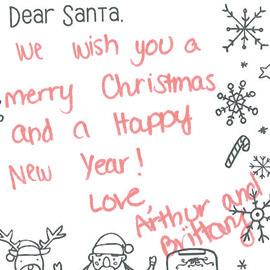 Dear Santa,
We wish you a
merry Christmas
and a Happy
New Year!
Love,
Arthur and
Brittany